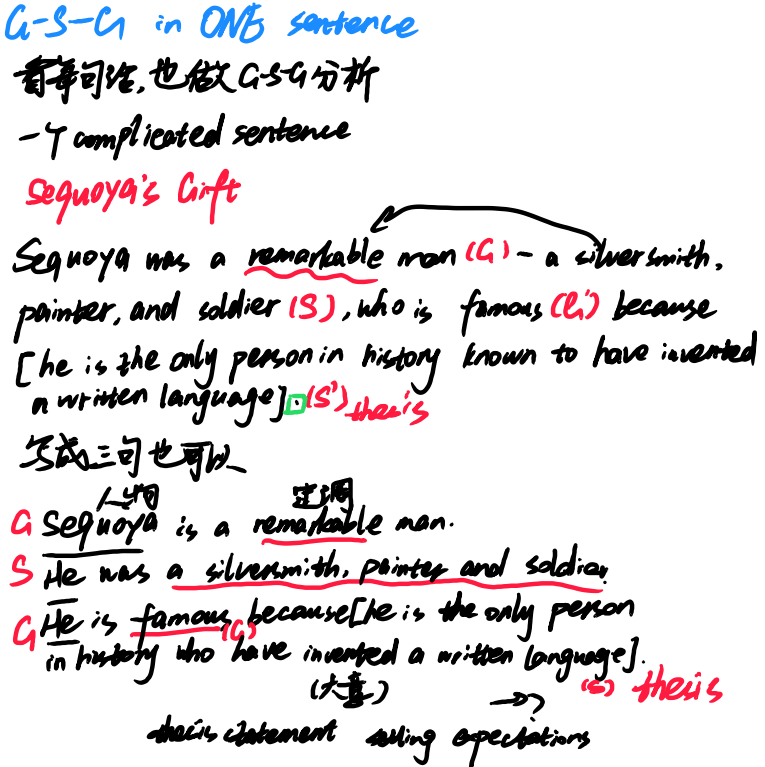 G-S-G in ONE sentence
看等句法,也做G-S-G分析
一个complicated sentence
Sequoya's Gift
Sequoya was a remarkable man (G) - a silversmith,
painter, and soldier (S), who is famous (G') because
[he is the only person in history known to have invented
a written language]. (S') thesis
写成三句也可以
人物 定调
G Sequoya is a remarkable man.
S He was a silversmith, painter and soldier.
G He is famous (G) because [he is the only person
in history who have invented a written language].
(S) thesis
(大意) →?
thesis statement setting expectations